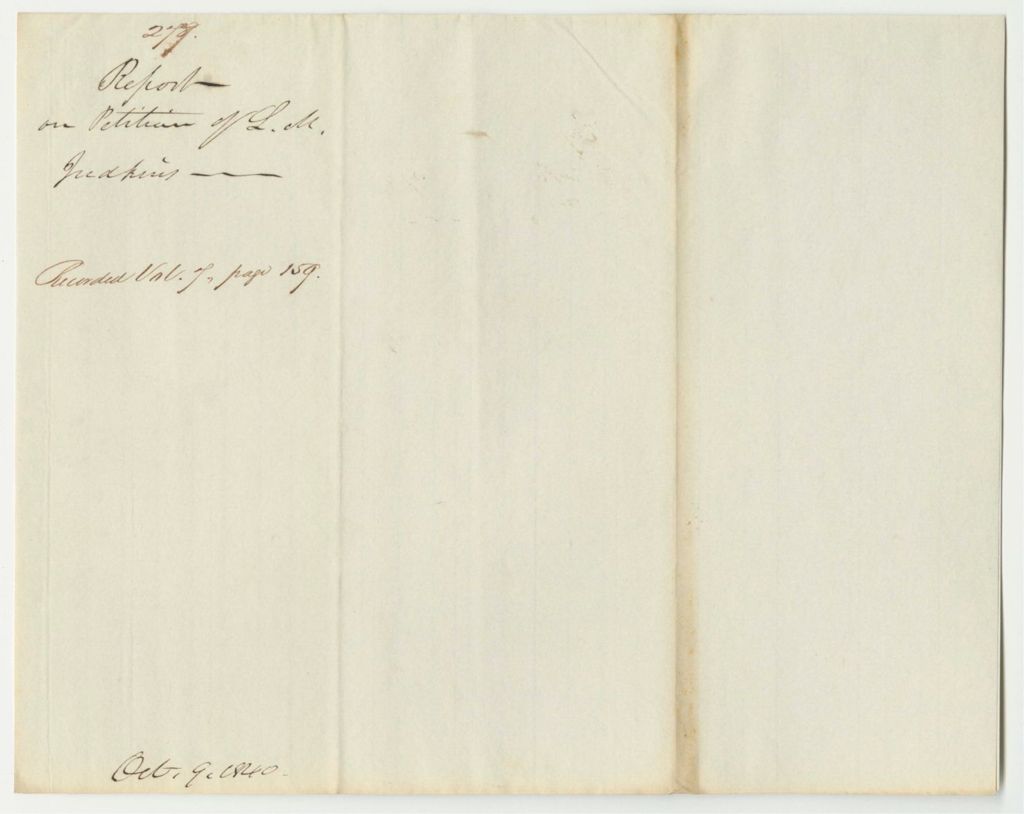 279.
Report
on Petition of L. M.
Judkins
Recorded Vol. 7, page 159.
Oct. 9. 1840.